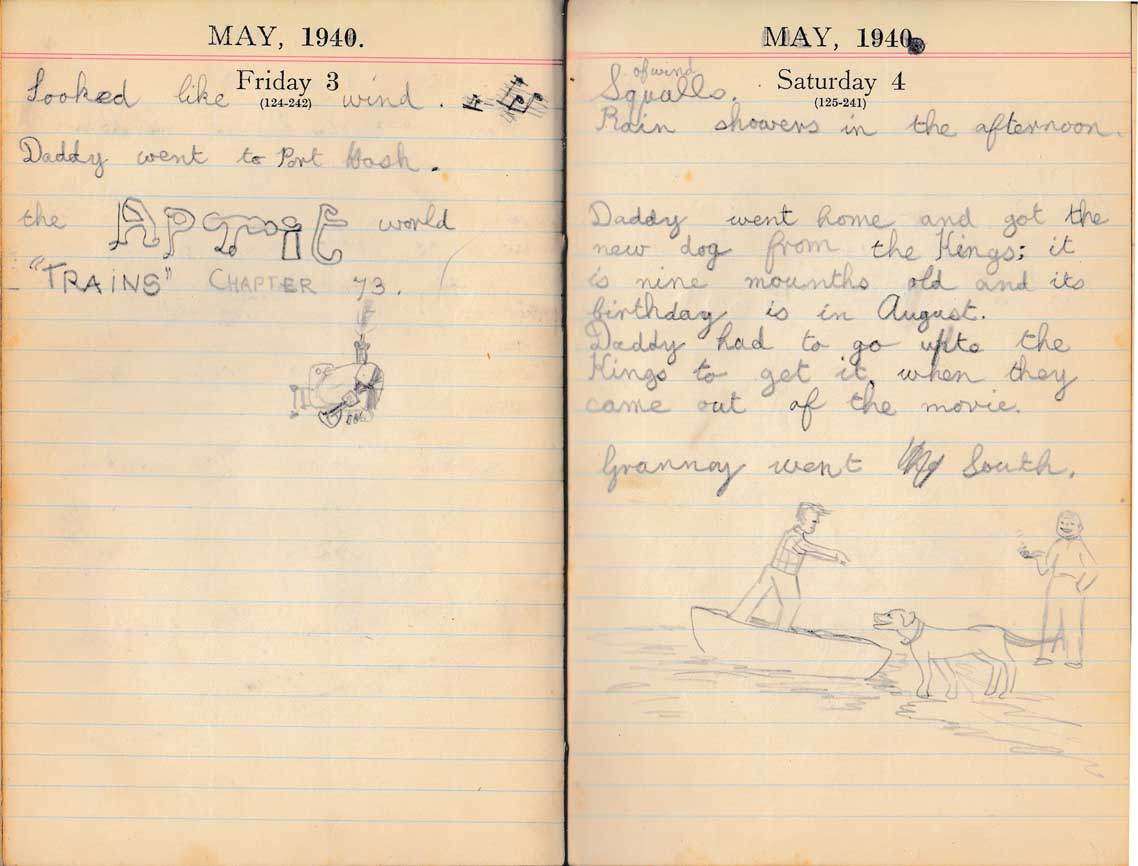 MAY, 1940.
Friday 3
(124-242)
Looked like wind.
Daddy went to Port Hash.
the world
"TRAINS" CHAPTER 73.
MAY, 1940
Saturday 4
(125-241)
of wind
Squalls.
Rain showers in the afternoon.
Daddy went home and got the
new dog from the Kings; it
is nine mounths old and its
birthday is in August.
Daddy had to go upto the
Kings to get it, when they
came out of the movie.
Grannay went South.